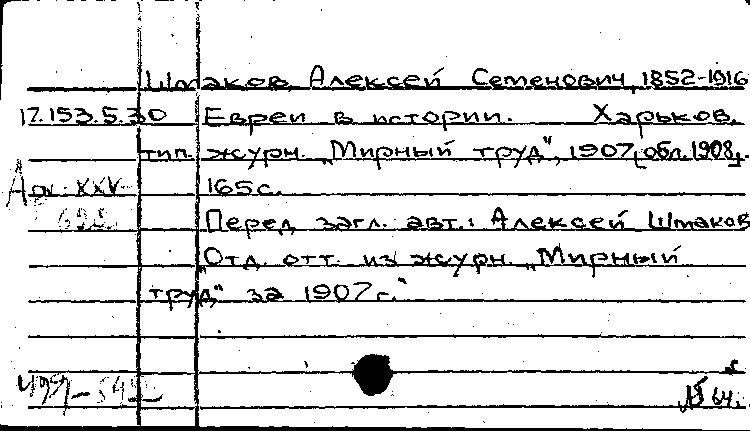 Шмаков, Алексей Семенович, 1852-1916
17.153.5.30 Евреи в истории. Харьков,
тип. журн. „Мирный труд", 1907 [обл. 1908].
165 с.
Перед загл. авт.: Алексей Шмаков
„Отд. отт. из журн. „Мирный
труд" за 1907 г."
64.